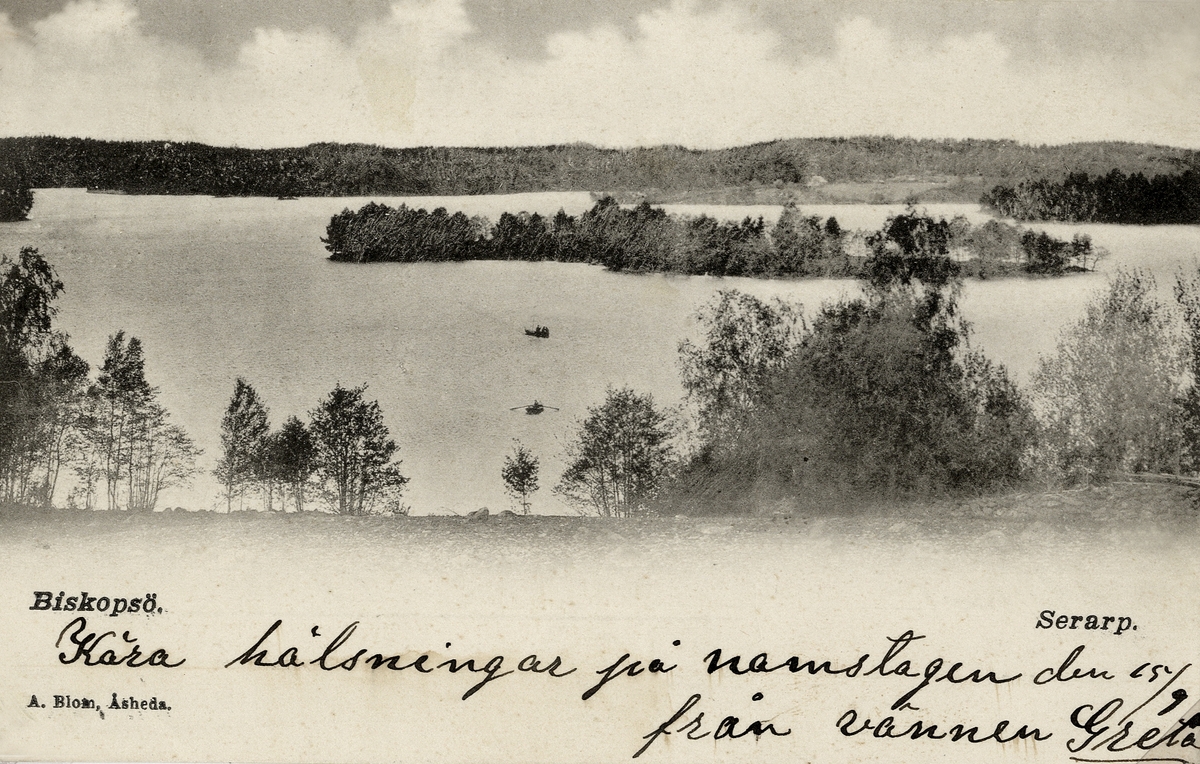 Biskopsö.
Serarp.
Kära hälsningar på namstagen den 15/9
A. Blom, Åsheda.
från vännen Greta